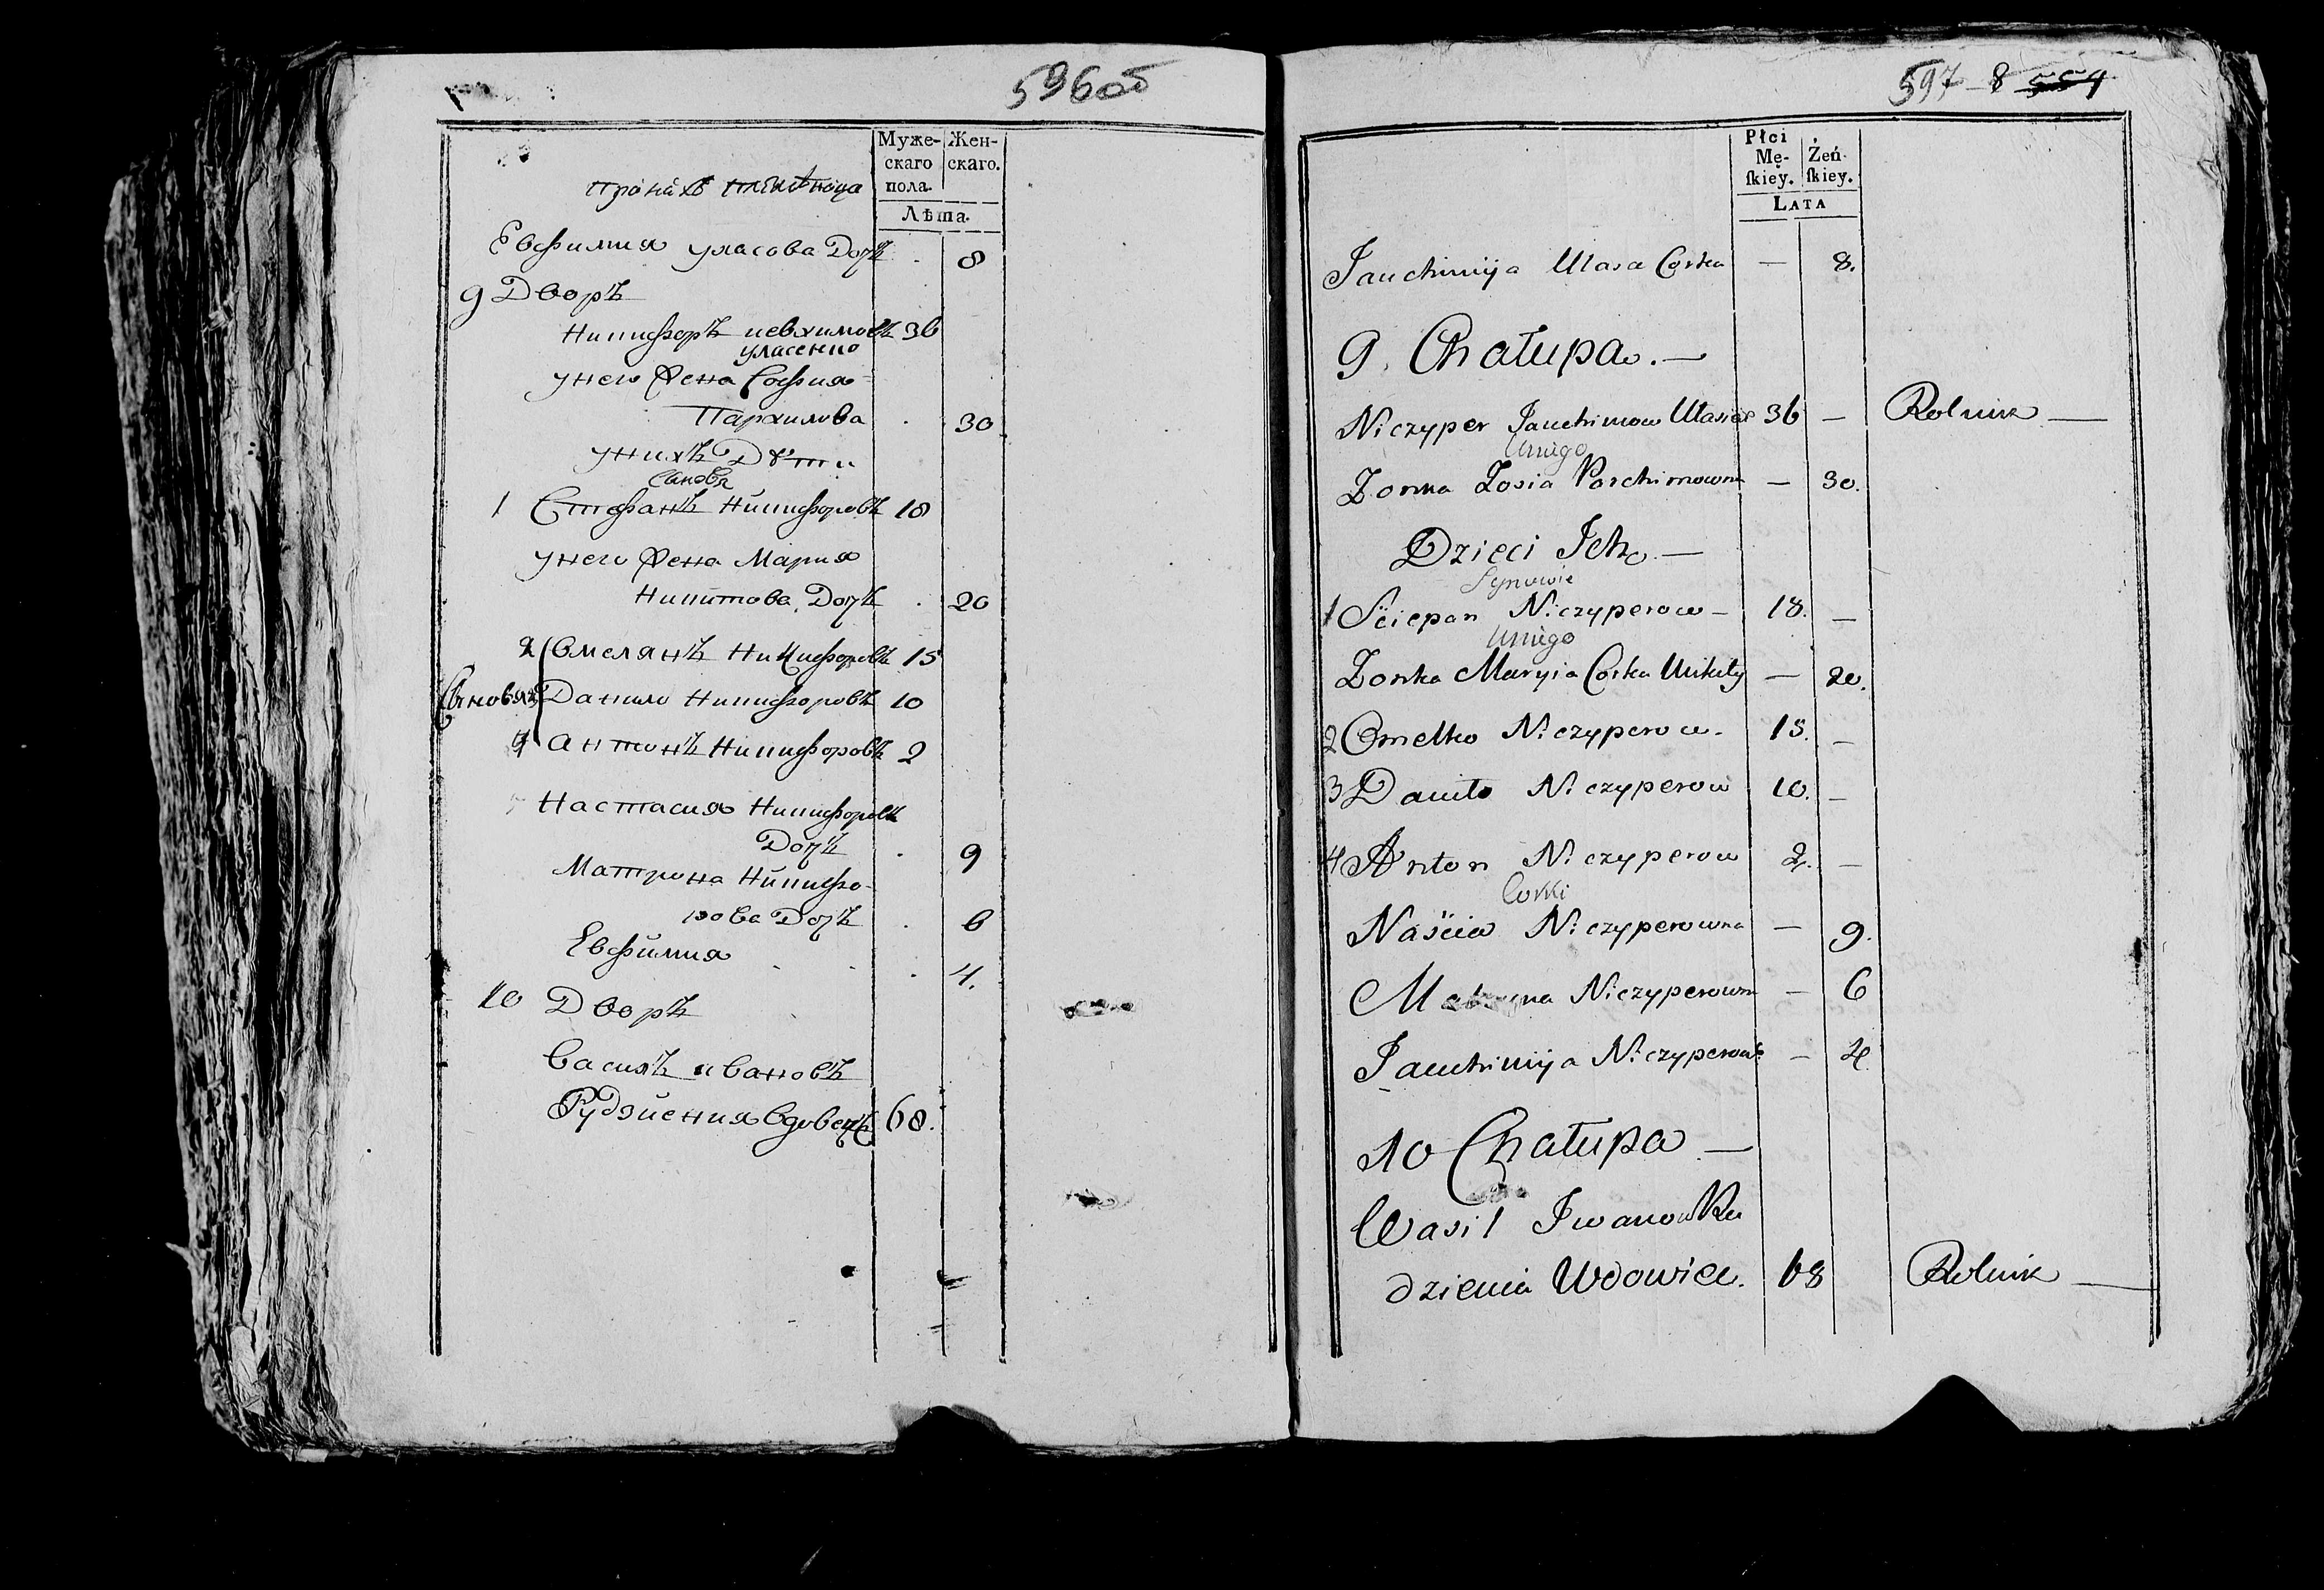 596об
Муже-
скаго
пола.
Жен-
скаго.
Лѣта.
Евфимия уласова Дочь . 8
9 Дворъ
Никифоръ иевхимовъ 36
уласенко
унего Жена София
Пархимова . 30
унихъ Дѣти
Сыновя
1 Стефанъ Никифоровъ 18
унего Жена Мария
Никитова Дочь . 20
2 Омелянъ Никифоровъ 15
Сыновя 3 Данило Никифоровъ 10
4 антонъ Никифоровъ 2
Настасия Никифоровa
Дочь . 9
Матрона Никифо-
рова Дочь . 6
Евфимия . . . 4.
10 Дворъ
Василь ивановъ
вдовецъ 68.
597 8 559
Płci
Mę-
ſkiey.
Żeń-
ſkiey.
LATA
Jauchimija Ułasa Corka — 8.
9. Chałupa. —
Niczyper Jauchimow 36 — Rolnik —
Uniego
Żonka Zosia Parchimowna — 30.
Dzieci Ich —
Synowie
1 Sciepan Niczyperow — 18. —
Uniego
Żonka Maryia Corka Mikity — 20.
2 Omelko Niczyperow — 15. —
3 Daniło Niczyperow 10. —
4 Anton Niczyperow 2. —
Corki
Naścia Niczyperowna — 9.
Matryna Niczyperowna — 6
Jauchimija Niczyperowna — 4
10 Chałupa —
Wasil Iwanow Ru
dzienia Wdowiec. 68 Rolnik —